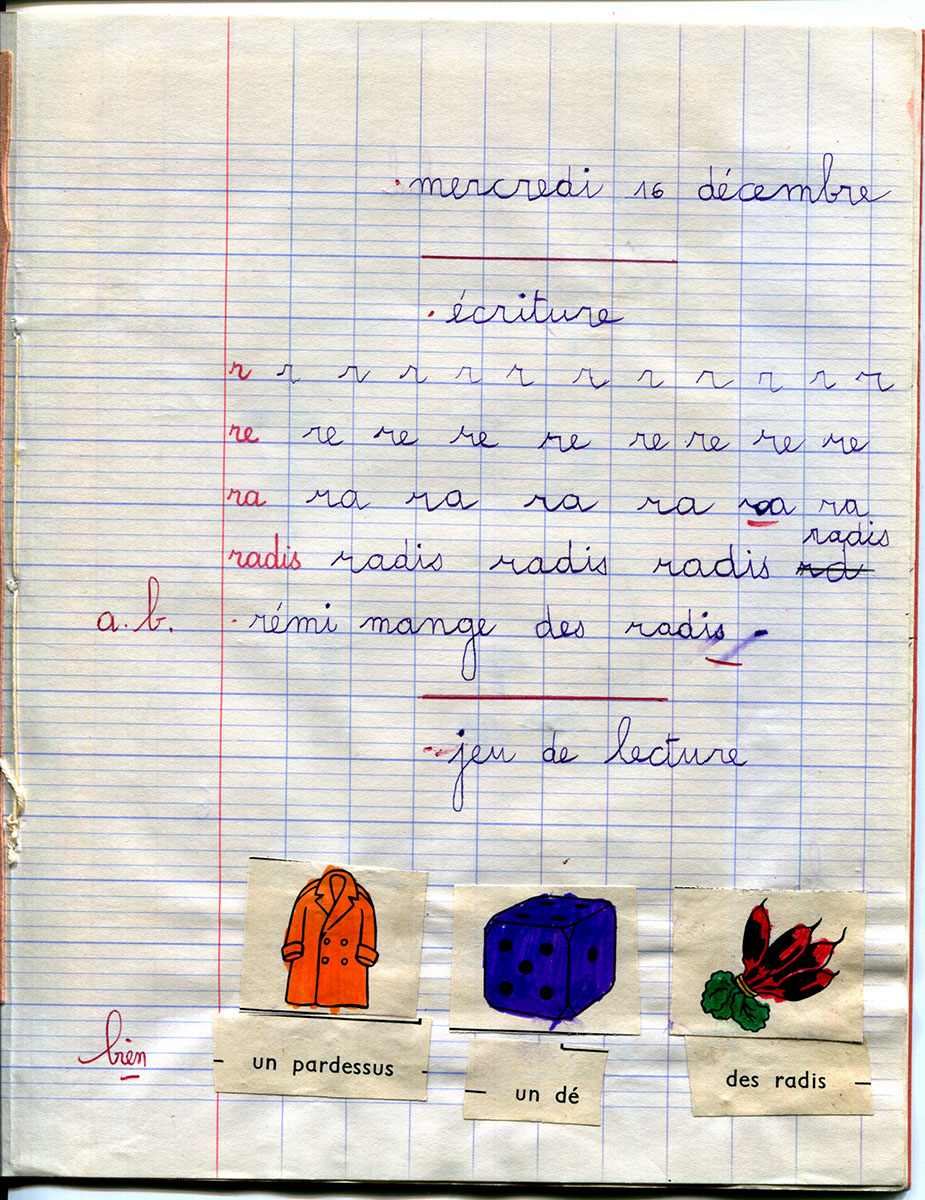 mercredi 16 décembre
écriture
r r r r r r r r r r r r
re re re re re re re re re
ra ra ra ra ra roa ra
radis
radis radis radis radis ra
a.b. rémi mange des radis.
jeu de lecture
bien
un pardessus
un dé
des radis